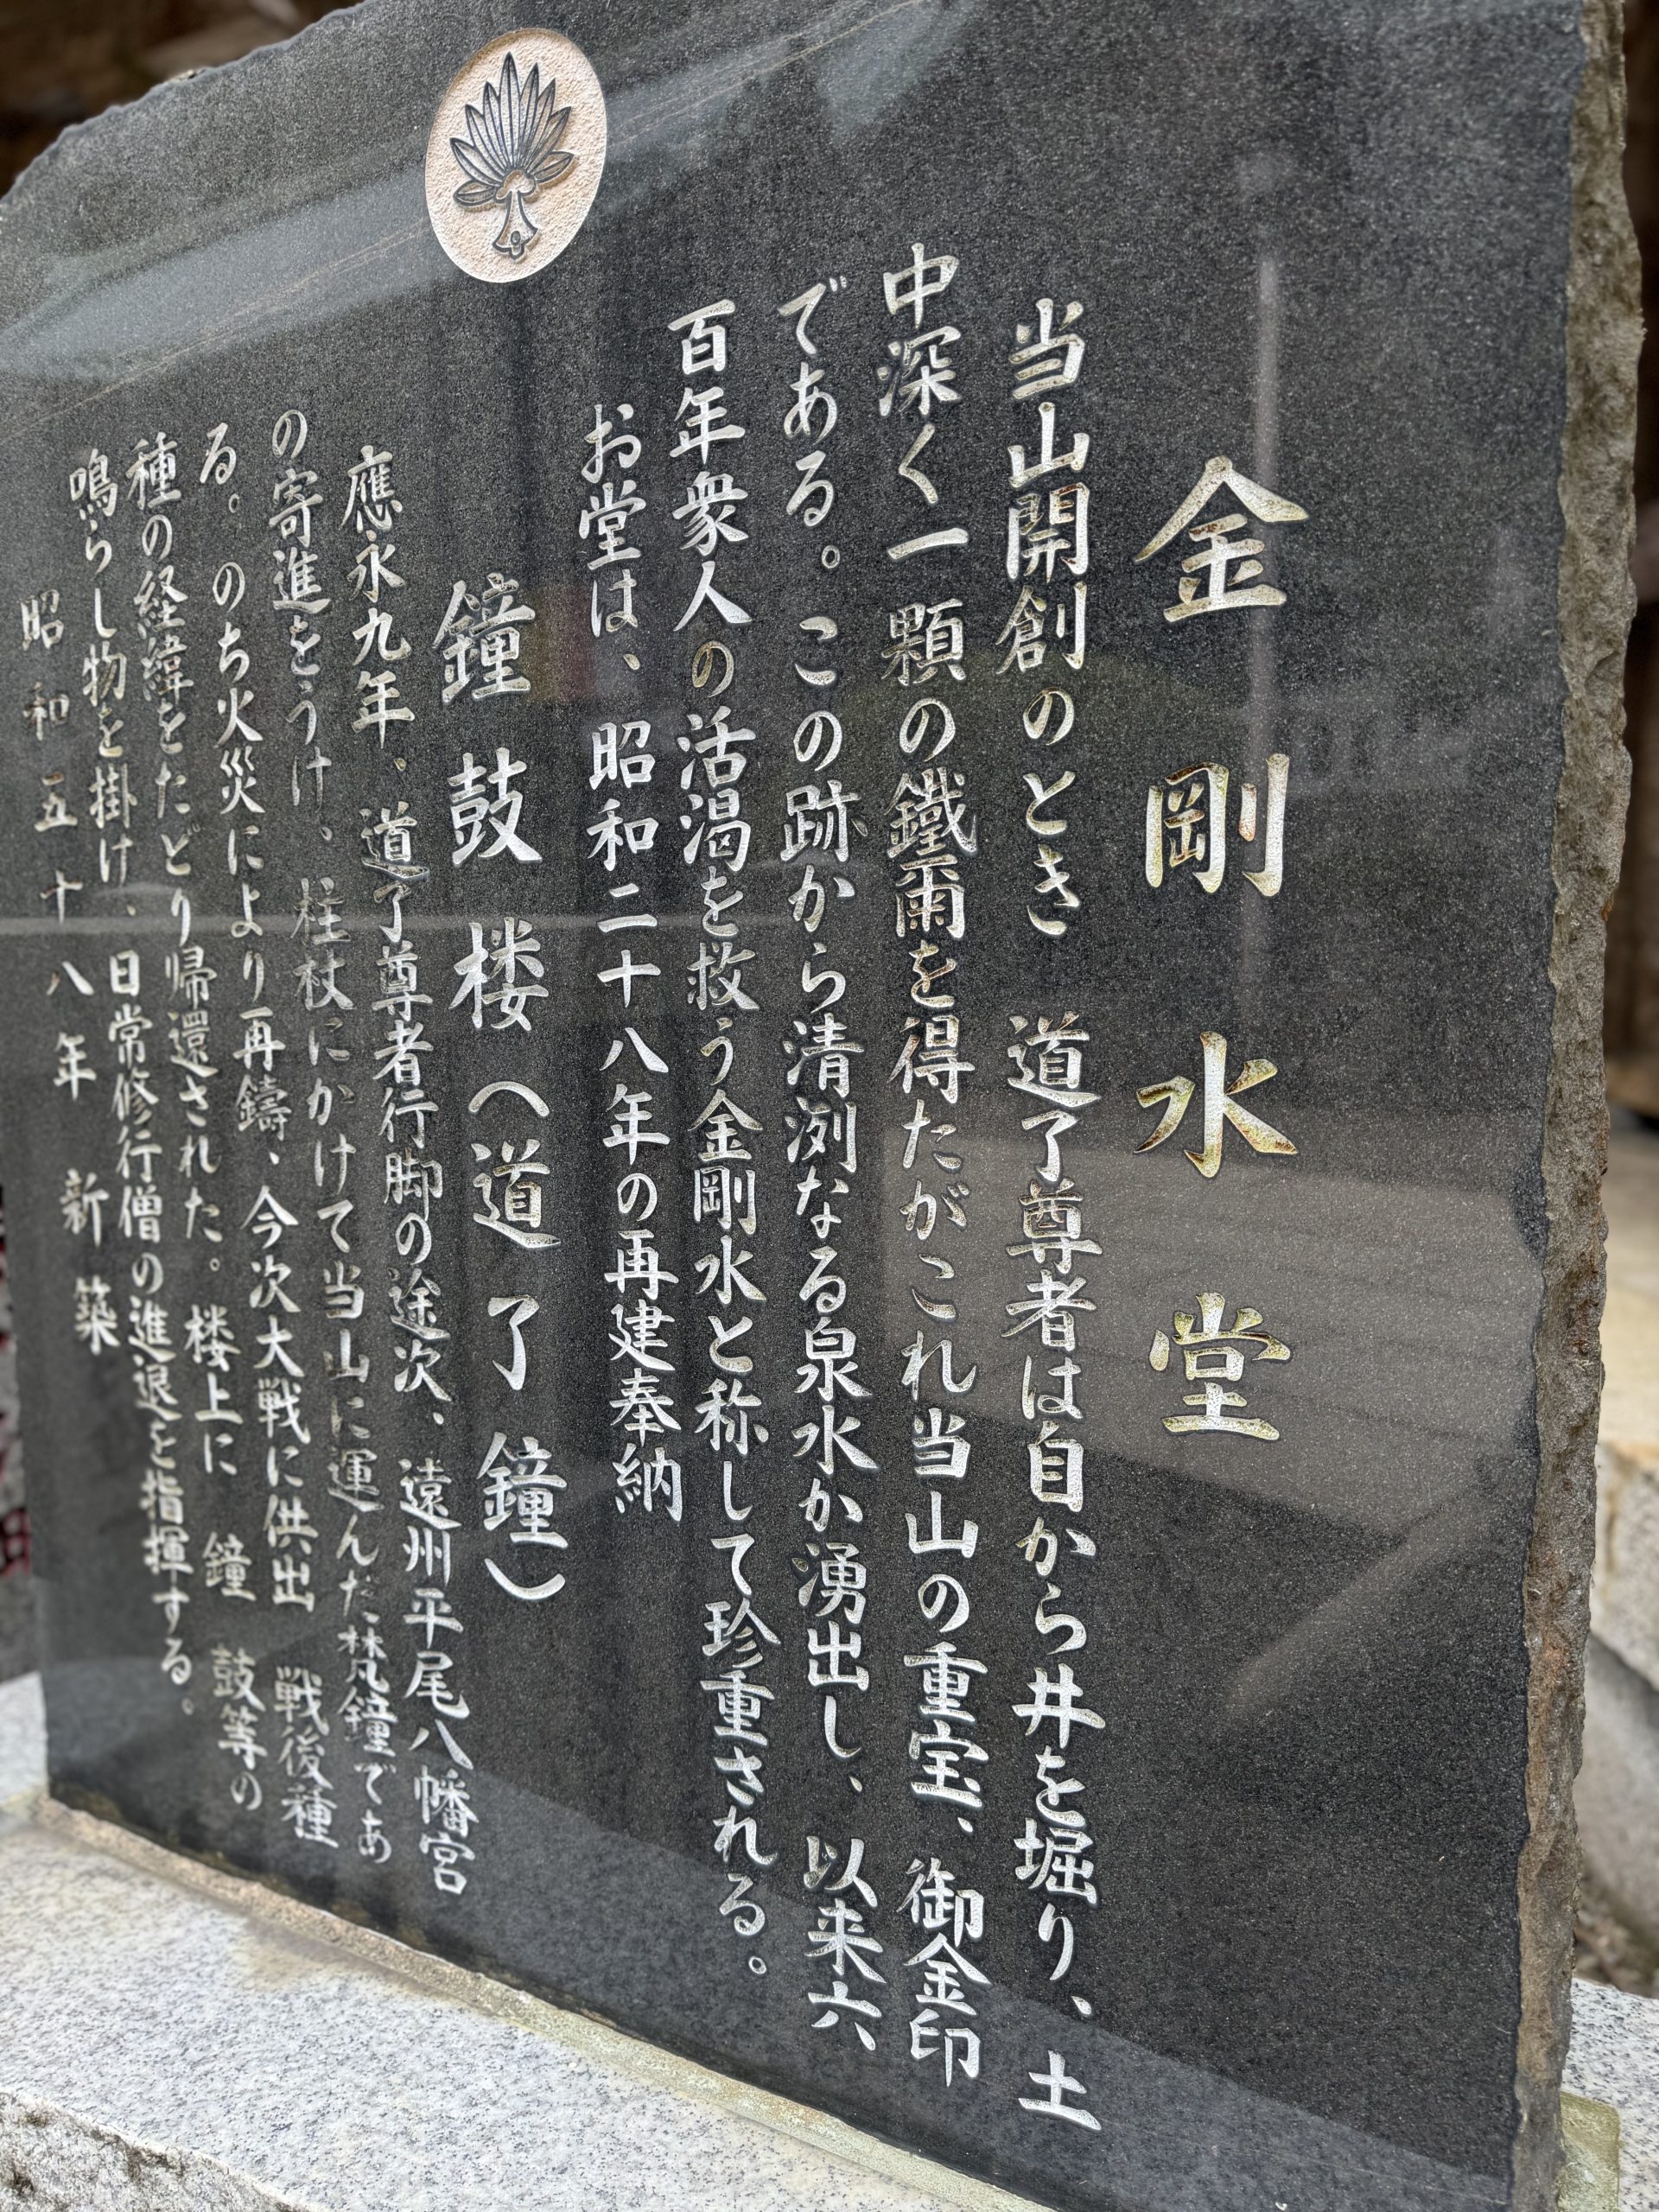 金剛水堂
当山開創のとき 道了尊者は自から井を堀り、土
中深く一顆の鐵爾を得たがこれ当山の重宝、御金印
である。この跡から清洌なる泉水か湧出し、以来六
百年衆人の活渇を救う金剛水と称して珍重される。
お堂は、昭和二十八年の再建奉納
鐘鼓楼(道了鐘)
應永九年、道了尊者行脚の途次、遠州平尾八幡宮
の寄進をうけ、柱杖にかけて当山に運んだ梵鐘であ
る。のち火災により再鑄、今次大戦に供出 戦後種
種の経緯をたどり帰還された。楼上に 鐘 鼓等の
鳴らし物を掛け、日常修行僧の進退を指揮する。
昭和五十八年 新築